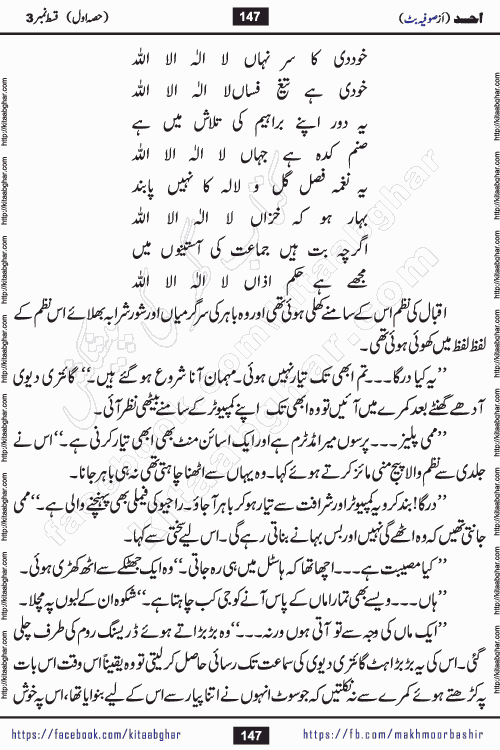 احد (از صوفیہ بٹ) 147 (حصہ اول) قسط نمبر 3
خودی کا سر نہاں لا الٰہ الا اللہ
خودی ہے تیغ فساں لا الٰہ الا اللہ
یہ دور اپنے براہیم کی تلاش میں ہے
صنم کدہ ہے جہاں لا الٰہ الا اللہ
یہ نغمہ فصل گل و لالہ کا نہیں پابند
بہار ہو کہ خزاں لا الٰہ الا اللہ
اگرچہ بت ہیں جماعت کی آستینوں میں
مجھے ہے حکم اذاں لا الٰہ الا اللہ
اقبال کی نظم اس کے سامنے کھلی ہوئی تھی اور وہ باہر کی سرگرمیاں اور شور شرابہ بھلائے اس نظم کے
لفظ لفظ میں کھوئی ہوئی تھی۔
’’یہ کیا درگا۔۔۔تم ابھی تک تیار نہیں ہوئی۔ مہمان آنا شروع ہو گئے ہیں۔‘‘ گائتری دیوی
آدھے گھنٹے بعد کمرے میں آئیں تو وہ ابھی تک اپنے کمپیوٹر کے سامنے بیٹھی نظر آئی۔
’’ممی پلیز۔۔۔پرسوں میرا مڈٹرم ہے اور ایک اسائن منٹ بھی ابھی تیار کرنی ہے۔‘‘ اس نے
جلدی سے نظم والا پیج منی مائز کرتے ہوئے کہا۔ وہ یہاں سے اٹھنا چاہتی تھی نہ ہی باہر جانا۔
’’درگا! بند کرو یہ کمپیوٹر اور شرافت سے تیار ہو کر باہر آ جاؤ۔ راجیو کی فیملی بھی پہنچنے والی ہے۔‘‘ ممی
جانتی تھیں کہ وہ اٹھے گی نہیں اور بس بہانے بناتی رہے گی۔ اس لیے سختی سے کہا۔
’’کیا مصیبت ہے۔۔۔اچھا تھا کہ ہاسٹل میں ہی رہ جاتی۔‘‘ وہ ایک جھٹکے سے اٹھ کھڑی ہوئی۔
’’ہاں۔۔۔ویسے بھی تمہارا ماں کے پاس آنے کو جی کب چاہتا ہے۔‘‘ شکوہ ان کے لبوں پہ مچلا۔
’’ایک ماں کی وجہ سے تو آتی ہوں ورنہ۔۔۔‘‘ وہ بڑبڑاتے ہوئے ڈریسنگ روم کی طرف چلی
گئی۔ اس کی یہ بڑبڑاہٹ گائتری دیوی کی سماعت تک رسائی حاصل کر لیتی تو وہ یقیناً اس وقت اس بات
پہ کڑھتے ہوئے کمرے سے نکلتیں کہ جو سوٹ انہوں نے اتنا پیار سے اس کے لیے بنوایا تھا، اس پہ خوش
https://facebook.com/kitaabghar 147 https://fb.com/makhmoorbashir
http://kitaabghar.com